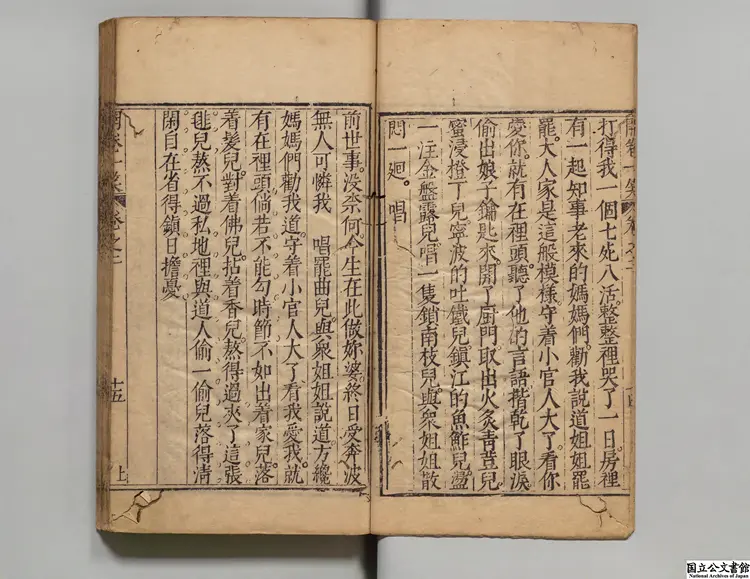 打得我一個七死八活。整整裡哭了一日。房裡
有一起知事老來的媽媽們。勸我說道姐姐罷
罷。大人家是這般模樣。守着小官人大了看你
愛你。就有在裡頭聽了他的言語。揩乾了眼淚
偷出娘子鑰匙來。開了厨門。取出火炙青荳兒。
蜜浸橙丁兒。寧波的吐鐵兒。鎮江的魚鮓兒。盪
一注金盤露兒。唱一隻鎖南枝兒。與衆姐姐散
悶一廻。 唱
前世事。没柰何。今生在此做妳婆。終日受奔波
無人可憐我 唱罷曲兒。與衆姐姐說道。方纔
媽媽們勸我道。守着小官人大了看我愛我。就
有在裡頭。倘若不能勾時節。不如出着家兒。落
着髮兒。對着佛兒。拈着香兒。熬得過。夾了這張
𣬠兒。熬不過。私地裡與道人偷一偷兒。落得凊
閑自在。省得鎖日擔憂
開卷一笑 卷之二
十五 上
国立公文書館
National Archives of Japan